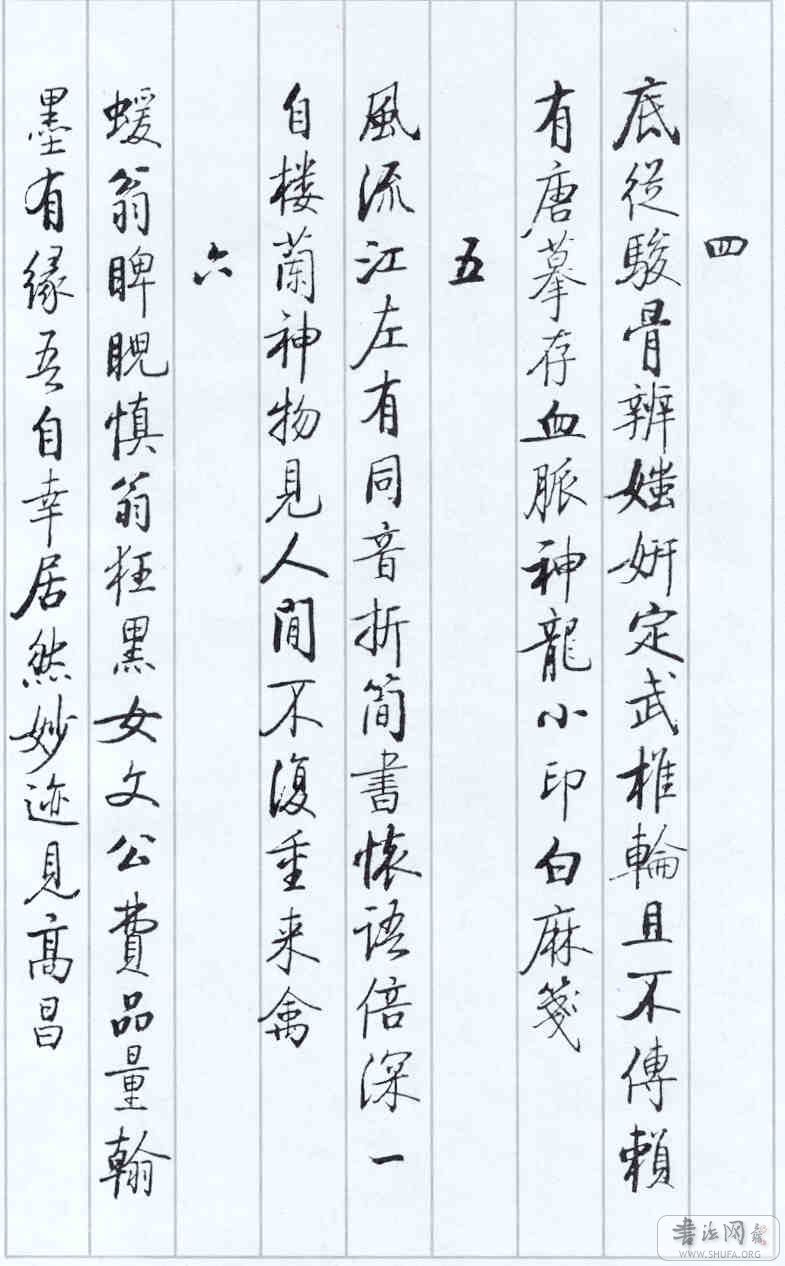 四
底從駿骨辨媸妍定武椎輪且不傳賴
有唐摹存血脈神龍小印白麻箋
五
風流江左有同音折簡書懷語倍深一
自楼蘭神物見人間不復重来禽
六
蝯翁睥睨慎翁狂黑女文公費品量翰
墨有緣吾自幸居然妙迹見高昌
书法网
WWW.SHUFA.ORG